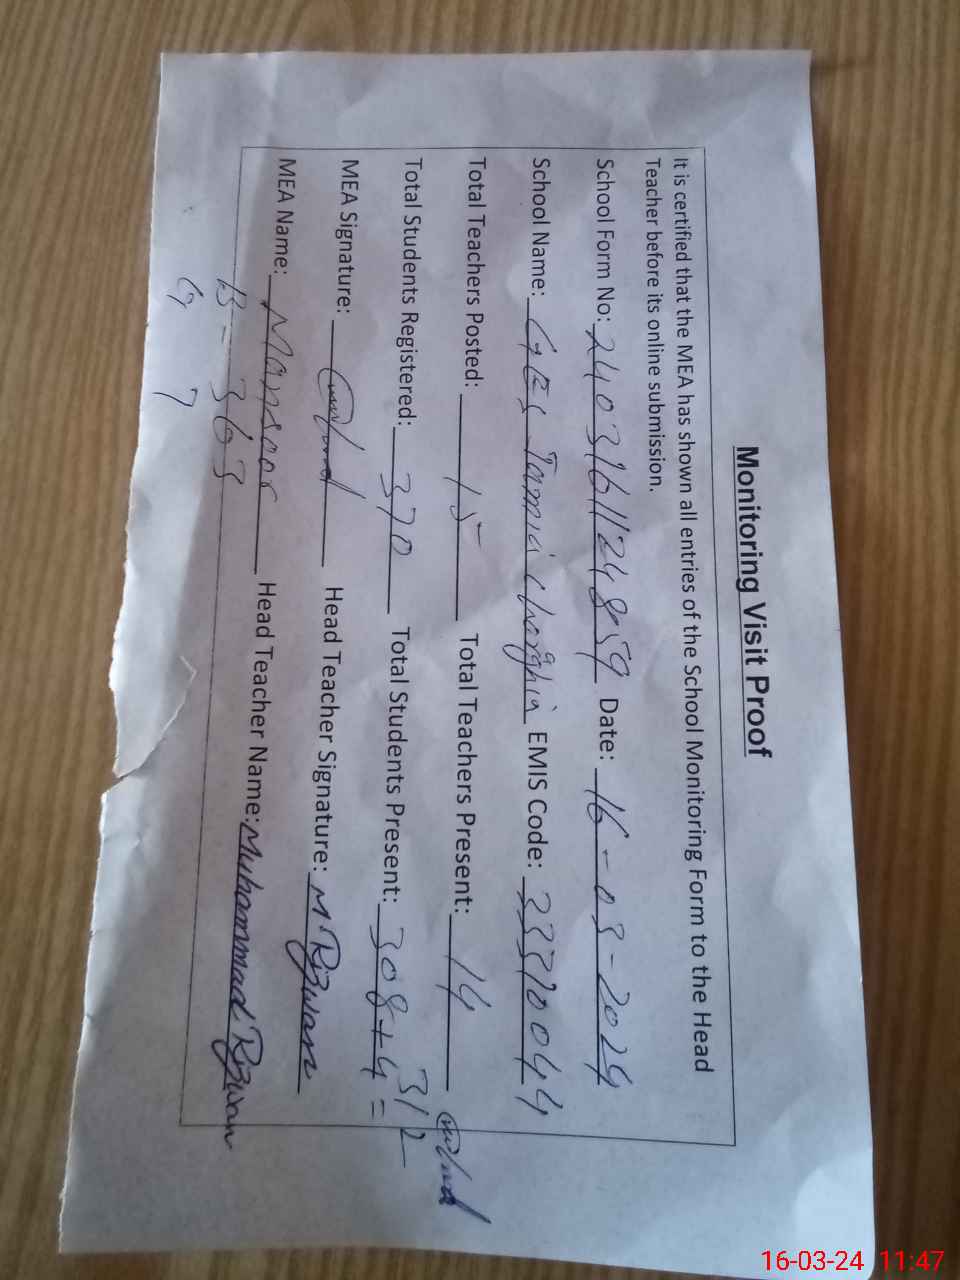 Monitoring Visit Proof
It is certified that the MEA has shown all entries of the School Monitoring Form to the Head
Teacher before its online submission.
School Form No: 24031611248859 Date: 16-03-2024
School Name: GES Jamia EMIS Code: 33370044
Total Teachers Posted: 15 Total Teachers Present: 14
Total Students Registered: 370 Total Students Present: 308+4= 312
MEA Signature: Head Teacher Signature: M Rizwan
MEA Name: Mansoor Head Teacher Name: Muhammad Rizwan
B- 363
G 7
16-03-24 11:47